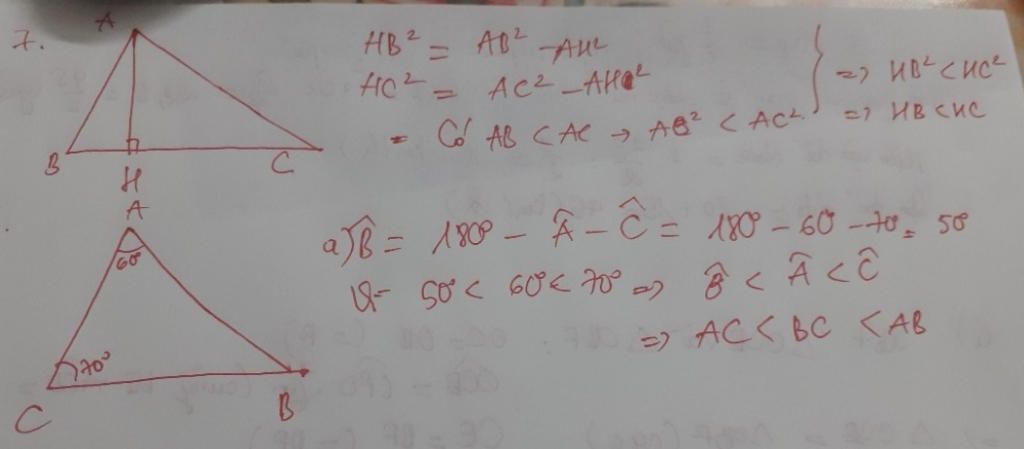 7.
A
B
H
C
HB² = AB² - AH²
HC² = AC² - AH²
= Có AB < AC → AB² < AC²
} => HB² < HC²
=> HB < HC
A
60°
70°
C
B
a) B̂ = 180° - Â - Ĉ = 180° - 60 - 70 = 50°
Vì 50° < 60° < 70° => B̂ < Â < Ĉ
=> AC < BC < AB